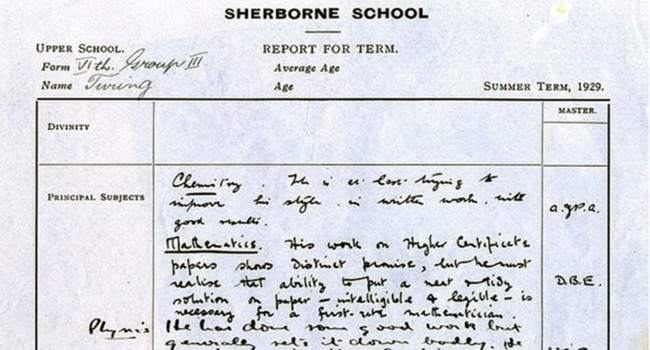 SHERBORNE SCHOOL
UPPER SCHOOL. REPORT FOR TERM.
Form VIth. Group III Average Age
Name Turing Age SUMMER TERM, 1929.
MASTER.
DIVINITY
PRINCIPAL SUBJECTS Chemistry. He is at last trying to
improve his style in written work with
good results. A.J.P.A.
Mathematics. His work on Higher Certificate
papers shows distinct promise, but he must
realise that ability to put a neat & tidy D.B.E.
solution on paper — intelligible & legible — is
necessary for a first-rate mathematician.
Physics He has done some good work but
generally sets it down badly. He